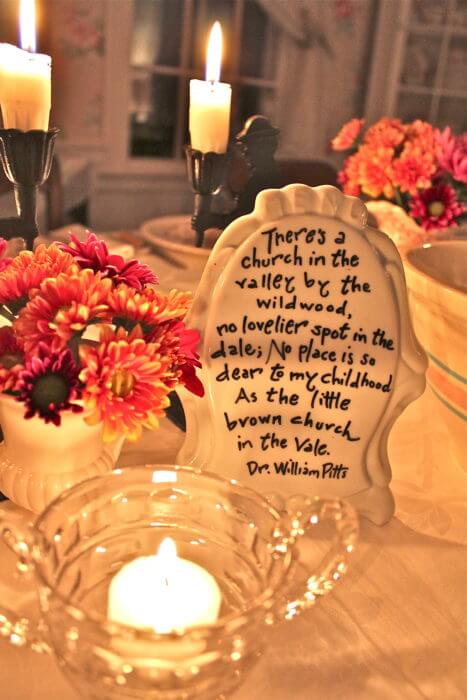 There's a
church in the
valley by the
wildwood,
no lovelier spot in the
dale; No place is so
dear to my childhood
As the little
brown church
in the Vale.
Dr. William Pitts